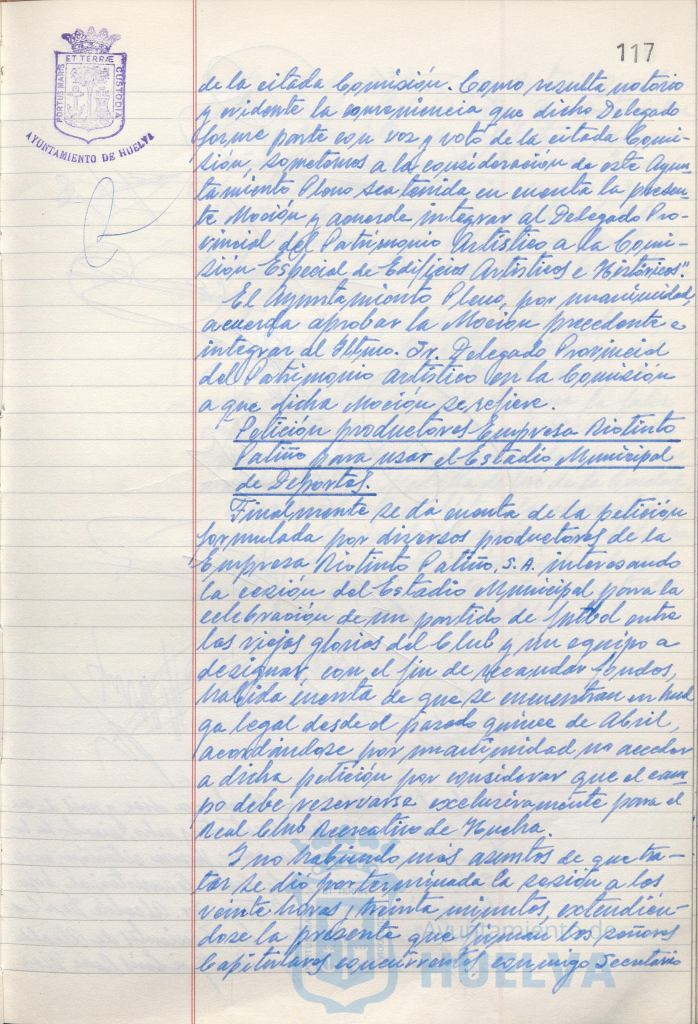 117
PORTUS MARIS ET TERRÆ CUSTODIA
AYUNTAMIENTO DE HUELVA
de la citada Comisión. Como resulta notorio
y evidente la conveniencia que dicho Delegado
forme parte con voz y voto de la citada Comi-
sión, sometemos a la consideración de este Ayun-
tamiento Pleno sea tenida en cuenta la presen-
te Moción y acuerde integrar al Delegado Pro-
vincial del Patrimonio Artístico a la Comi-
sión Especial de Edificios Artísticos e Históricos".
El Ayuntamiento Pleno, por unanimidad,
acuerda aprobar la Moción precedente e
integrar al Iltmo. Sr. Delegado Provincial
del Patrimonio artístico en la Comisión
a que dicha Moción se refiere.
Petición productores Empresa Riotinto
Patiño para usar el Estadio Municipal
de Deportes.
Finalmente se dá cuenta de la petición
formulada por diversos productores de la
Empresa Riotinto Patiño, S.A. interesando
la cesión del Estadio Municipal para la
celebración de un partido de futbol entre
las viejas glorias del Club y un equipo a
designar, con el fin de recaudar fondos,
habida cuenta de que se encuentran en huel-
ga legal desde el pasado quince de Abril,
acordándose por unanimidad no acceder
a dicha petición por considerar que el cam-
po debe reservarse exclusivamente para el
Real Club Recreativo de Huelva.
Y no habiendo más asuntos de que tra-
tar se dió por terminada la sesión a las
veinte horas y treinta minutos, extendién-
dose la presente que firman los señores
Capitulares concurrentes conmigo Secretario
Ayuntamiento de
HUELVA